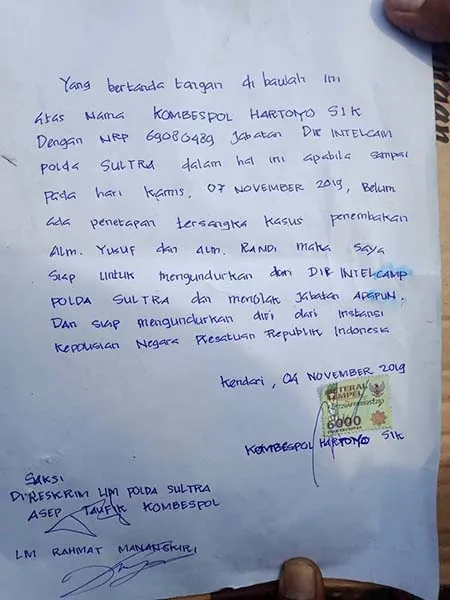 Yang bertanda tangan di bawah ini
atas nama KOMBESPOL HARTOYO SIK
Dengan NRP 69080489 Jabatan DIR INTELCAM
POLDA SULTRA dalam hal ini apabila sampai
pada hari kamis, 07 NOVEMBER 2019, Belum
ada penetapan tersangka kasus penembakan
Alm. Yusuf dan Alm. RANDI maka saya
siap untuk mengundurkan dari DIR INTELCAMP
POLDA SULTRA dan menolak jabatan APAPUN.
Dan siap mengundurkan diri dari instansi
Kepolisian Negara Presatuan Republik Indonesia
Kendari, 04 NOVEMBER 2019
METERAI
TEMPEL
6000
KOMBESPOL HARTOYO SIK
SAKSI
DIRESKRIM UM POLDA SULTRA
ASEP TAUFIK KOMBESPOL
LM RAHMAT MANANGKIRI